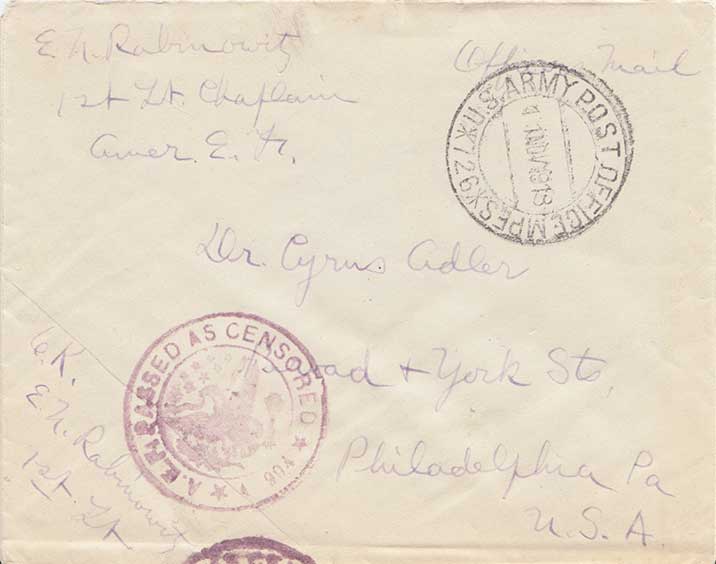 E. N. Rabinowitz
1st Lt. Chaplain
Amer. E. F.
Officers Mail
U.S. ARMY POST OFFICE M.P.E.S. X 927 X
NOV 1918
Dr. Cyrus Adler
Broad + York Sts.
Philadelphia Pa
U. S. A.
A.E.F. PASSED AS CENSORED
O.K.
E. N. Rabinowitz
1st Lt